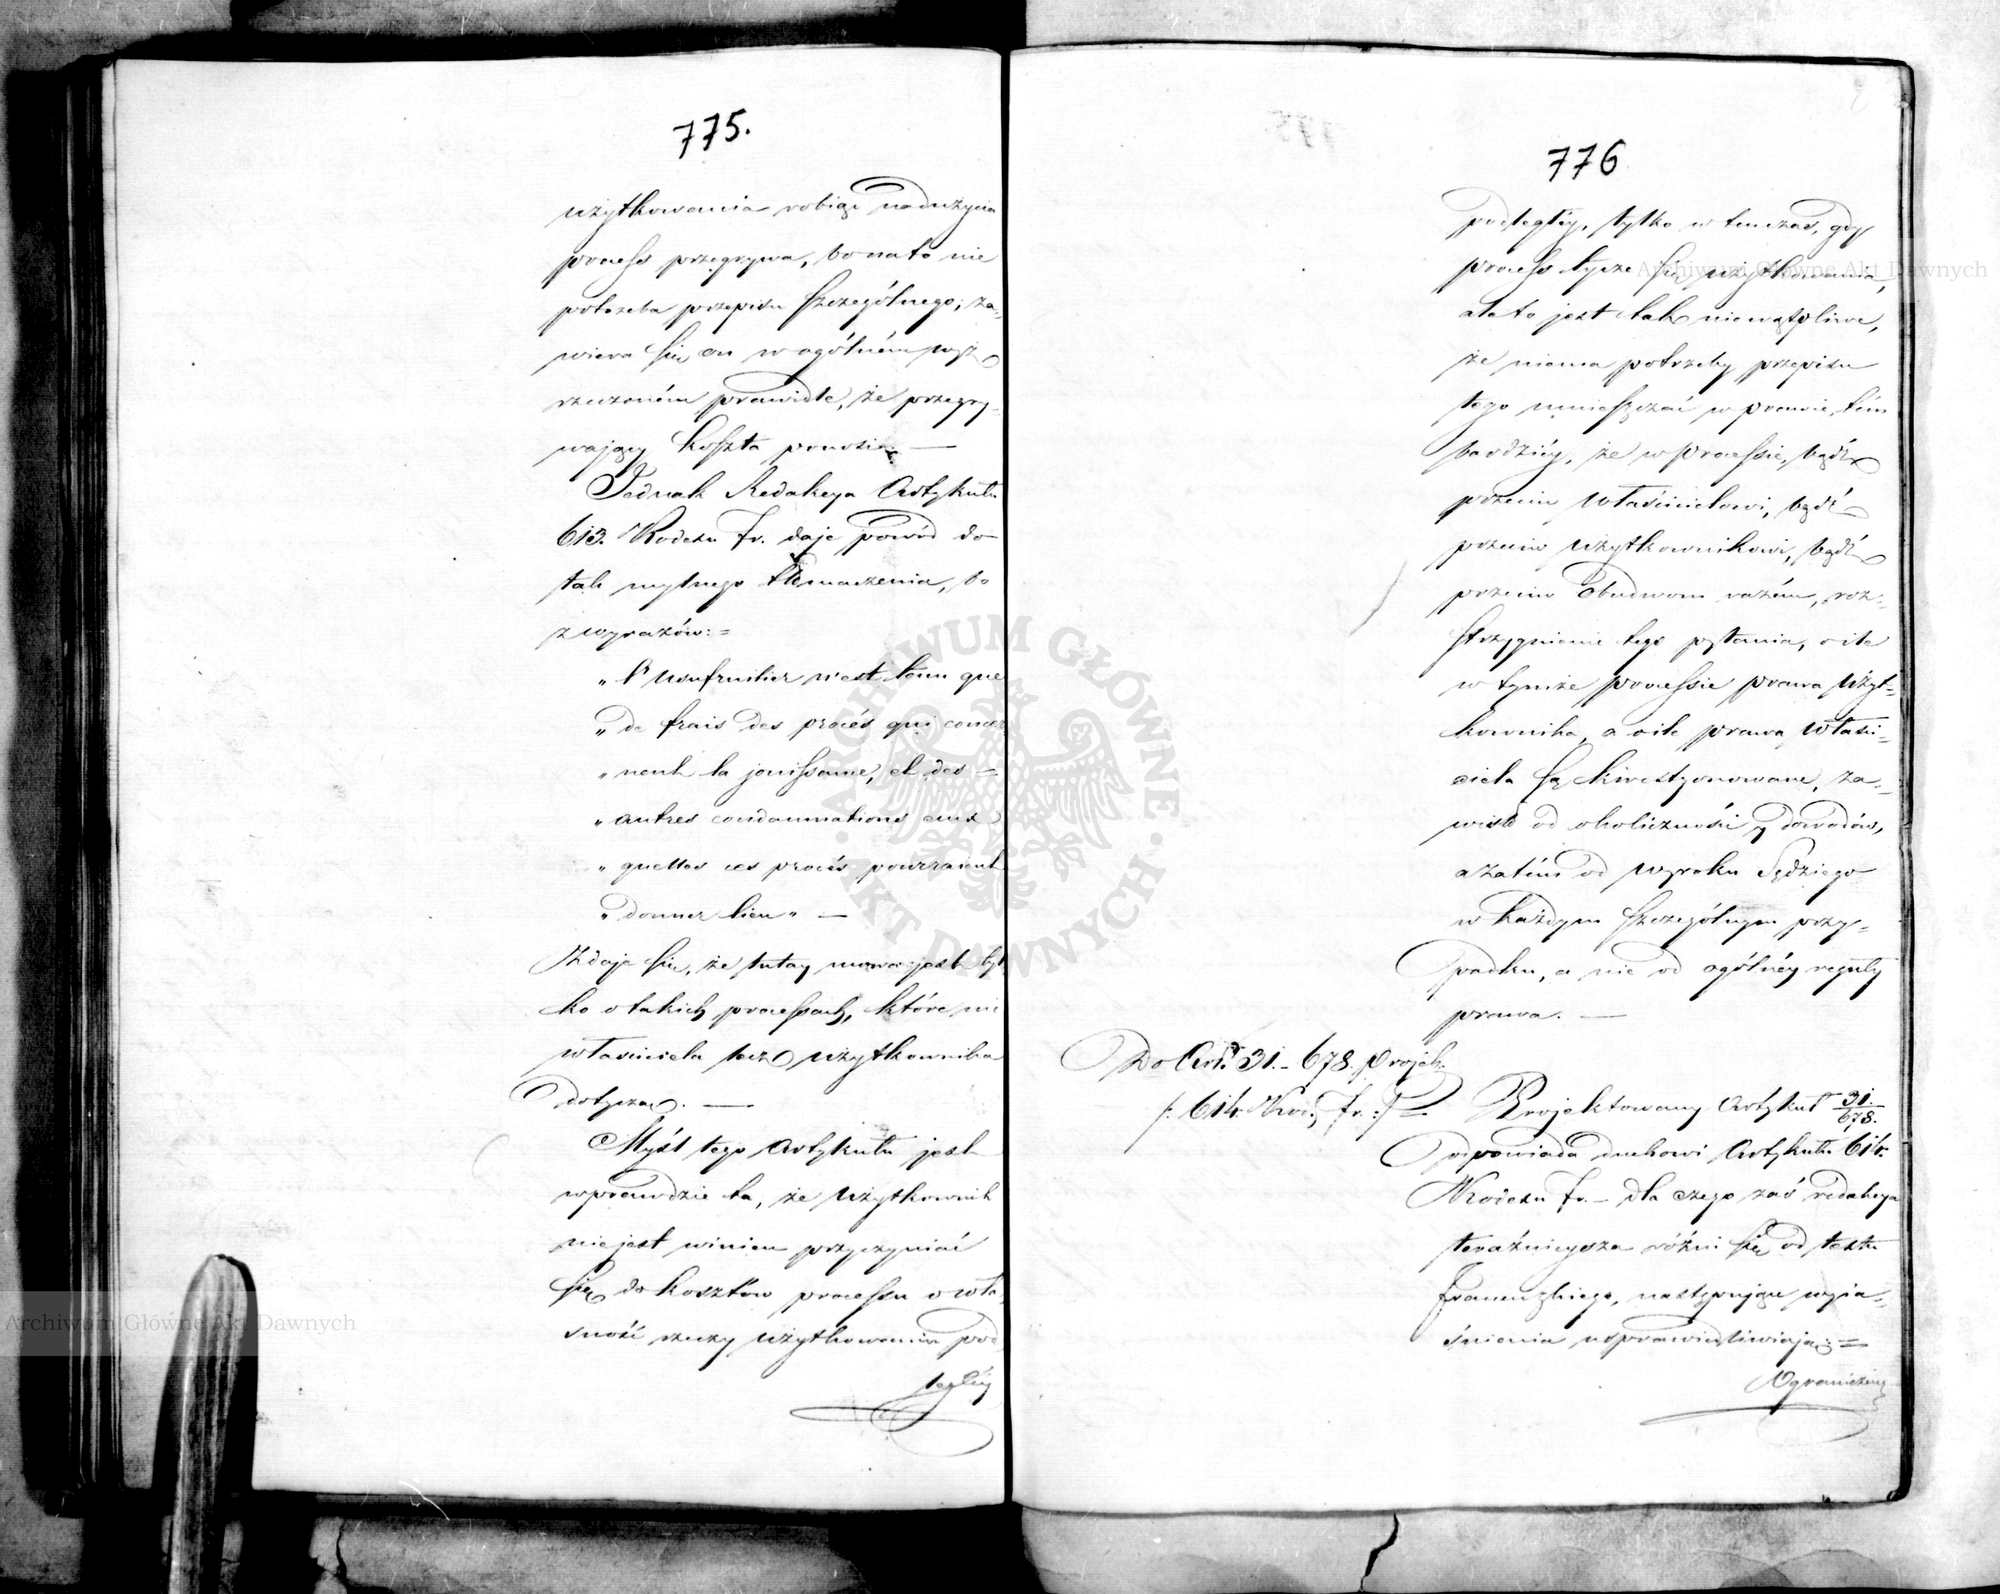 775.
użytkowania robiąc nadużycia
process przegrywa, bo na to nie
potrzeba przepisu szczególnego; za-
wiera się on w ogólném wyż
rzeczoném prawidle, że przegry-
wający koszta ponosi. —
Jednak Redakcya Artykułu
613. Kodexu fr. daje powód do
tak mylnego tłómaczenia, bo
z wyrazów: =
„ l'usufruitier n'est tenu que
„ de frais des procés qui concer
„ nent la jouissance, et des =
„ autres condamnations aux
„ quelles ces procés pourraient
„ donner lieu „ —
Zdaje się, że tutay mowa jest tyl
ko o takich processach, które nie
właściciela lecz użytkownika
dotyczą. —
Myśl tego Artykułu jest
wprawdzie ta, że użytkownik
nie jest winien przyczyniać
się do kosztów processu o wła-
sność rzeczy użytkowaniu pod
ległéy
776
podległéy, tylko w tenczas, gdy
process tycze się użytkowania,
ale to jest tak niewątpliwe,
że niema potrzeby przepisu
tego umieszczać w prawie, tém
bardziéy, że w processie, bądź
przeciw właścicielowi, bądź
przeciw użytkownikowi, bądź
przeciw obudwom razém, roz-
strzygnienie tego pytania, o ile
w tymże processie prawa użyt-
kownika, a o ile prawa właści-
ciela są kwestyonowane, za-
wisło od okoliczności y dowodów,
a zatém od wyroku Sędziego
w każdym szczególnym przy-
padku, a nie od ogólnéy reguły
prawa. —
Do Art. 31. - 678. Projek.
/: 614. Kod. fr. :/
Projektowany Artykuł 31./678.
odpowiada duchowi Artykułu 614.
Kodexu fr. — dla czego zaś redakcya
teraźnieysza różni się od textu
francuzkiego, następujące wyia-
śnienia usprawiedliwiają: =
Ograniczeni
Archiwum Główne Akt Dawnych
Archiwum Główne Akt Dawnych
ARCHIWUM GŁÓWNE
AKT DAWNYCH